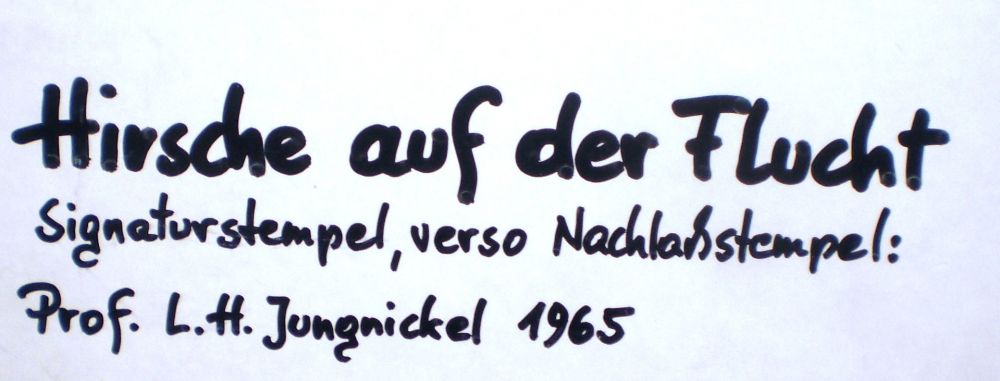 Hirsche auf der Flucht
Signaturstempel, verso Nachlaßstempel:
Prof. L.H. Jungnickel 1965